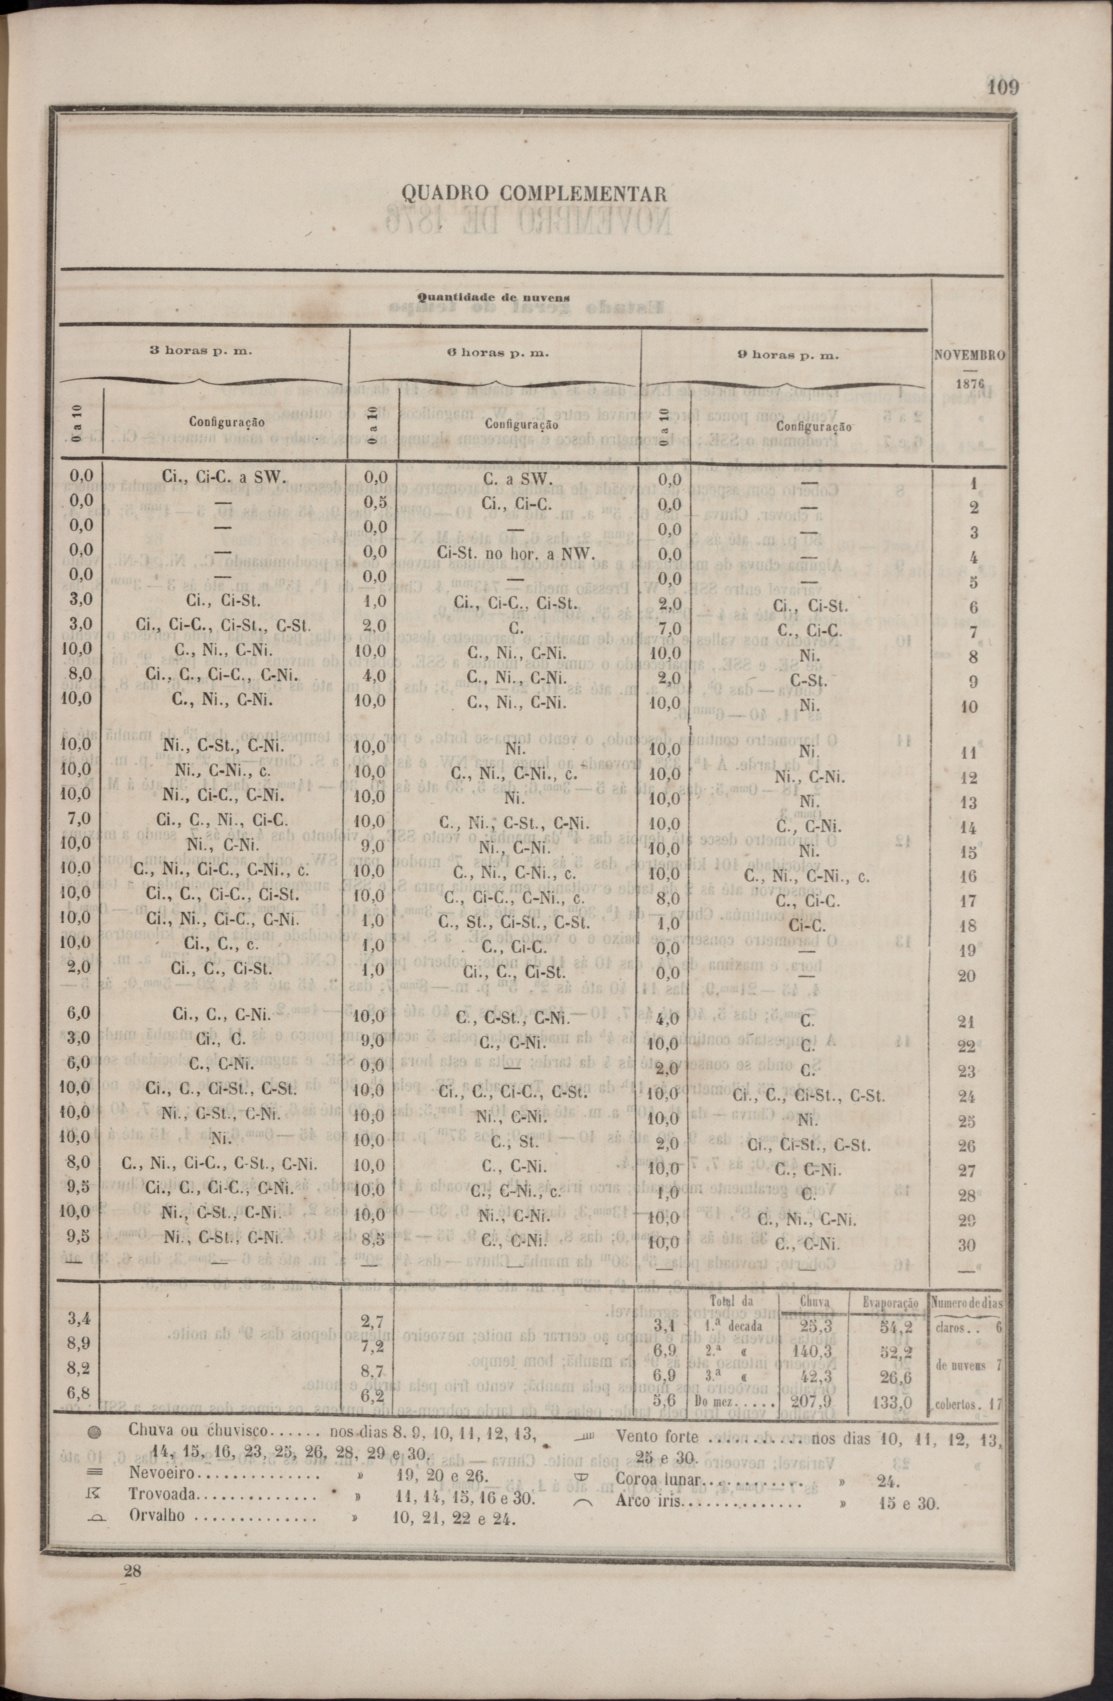 109
QUADRO COMPLEMENTAR
Quantidade de nuvens
3 horas p. m. 6 horas p. m. 9 horas p. m. NOVEMBRO
—
1876
0 a 10 Configuração 0 a 10 Configuração 0 a 10 Configuração
0,0 Ci., Ci-C. a SW. 0,0 C. a SW. 0,0 — 1
0,0 — 0,5 Ci., Ci-C. 0,0 — 2
0,0 — 0,0 — 0,0 — 3
0,0 — 0,0 Ci-St. no hor. a NW. 0,0 — 4
0,0 — 0,0 — 0,0 — 5
3,0 Ci., Ci-St. 1,0 Ci., Ci-C., Ci-St. 2,0 Ci., Ci-St. 6
3,0 Ci., Ci-C., Ci-St., C-St. 2,0 C. 7,0 C., Ci-C. 7
10,0 C., Ni., C-Ni. 10,0 C., Ni., C-Ni. 10,0 Ni. 8
8,0 Ci., C., Ci-C., C-Ni. 4,0 C., Ni., C-Ni. 2,0 C-St. 9
10,0 C., Ni., C-Ni. 10,0 C., Ni., C-Ni. 10,0 Ni. 10
10,0 Ni., C-St., C-Ni. 10,0 Ni. 10,0 Ni. 11
10,0 Ni., C-Ni., c. 10,0 C., Ni., C-Ni., c. 10,0 Ni., C-Ni. 12
10,0 Ni., Ci-C., C-Ni. 10,0 Ni. 10,0 Ni. 13
7,0 Ci., C., Ni., Ci-C. 10,0 C., Ni., C-St., C-Ni. 10,0 C., C-Ni. 14
10,0 Ni., C-Ni. 9,0 Ni., C-Ni. 10,0 Ni. 15
10,0 C., Ni., Ci-C., C-Ni., c. 10,0 C., Ni., C-Ni., c. 10,0 C., Ni., C-Ni., c. 16
10,0 Ci., C., Ci-C., Ci-St. 10,0 C., Ci-C., C-Ni., c. 8,0 C., Ci-C. 17
10,0 Ci., Ni., Ci-C., C-Ni. 1,0 C., St., Ci-St., C-St. 1,0 Ci-C. 18
10,0 Ci., C., c. 1,0 C., Ci-C. 0,0 — 19
2,0 Ci., C., Ci-St. 1,0 Ci., C., Ci-St. 0,0 — 20
6,0 Ci., C., C-Ni. 10,0 C., C-St., C-Ni. 4,0 C. 21
3,0 Ci., C. 9,0 C., C-Ni. 10,0 C. 22
6,0 C., C-Ni. 0,0 — 2,0 C. 23
10,0 Ci., C., Ci-St., C-St. 10,0 Ci., C., Ci-C., C-St. 10,0 Ci., C., Ci-St., C-St. 24
10,0 Ni., C-St., C-Ni. 10,0 Ni., C-Ni. 10,0 Ni. 25
10,0 Ni. 10,0 C., St. 2,0 Ci., Ci-St., C-St. 26
8,0 C., Ni., Ci-C., C-St., C-Ni. 10,0 C., C-Ni. 10,0 C., C-Ni. 27
9,5 Ci., C., Ci-C., C-Ni. 10,0 C., C-Ni., c. 1,0 C. 28
10,0 Ni., C-St., C-Ni. 10,0 Ni., C-Ni. 10,0 C., Ni., C-Ni. 29
9,5 Ni., C-St., C-Ni. 8,5 C., C-Ni. 10,0 C., C-Ni. 30
— — — — — — —
Total da Chuva Evaporação Numero de dias
3,4 2,7 3,1 1.ª decada 25,3 54,2 claros.. 6
8,9 7,2 6,9 2.ª « 140,3 52,2
8,2 8,7 6,9 3.ª « 42,3 26,6 de nuvens 7
6,8 6,2 5,6 Do mez..... 207,9 133,0 cobertos. 17
Chuva ou chuvisco...... nos dias 8, 9, 10, 11, 12, 13,
14, 15, 16, 23, 25, 26, 28, 29 e 30.
Nevoeiro.............. » 19, 20 e 26.
Trovoada.............. » 11, 14, 15, 16 e 30.
Orvalho .............. » 10, 21, 22 e 24.
Vento forte ........... nos dias 10, 11, 12, 13,
25 e 30.
Coroa lunar............ » 24.
Arco iris.............. » 15 e 30.
28